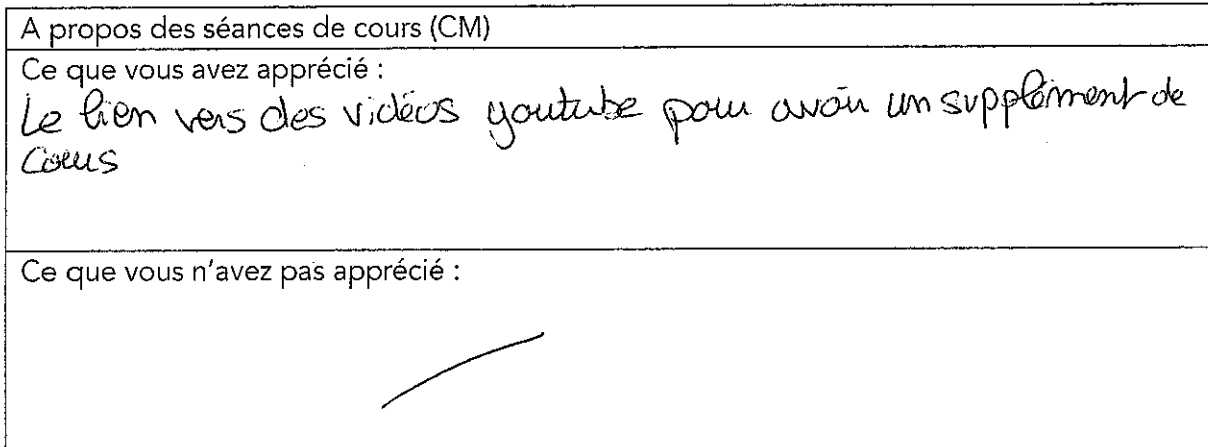 A propos des séances de cours (CM)
Ce que vous avez apprécié :
Le lien vers des vidéos youtube pour avoir un supplément de
cours
Ce que vous n'avez pas apprécié :